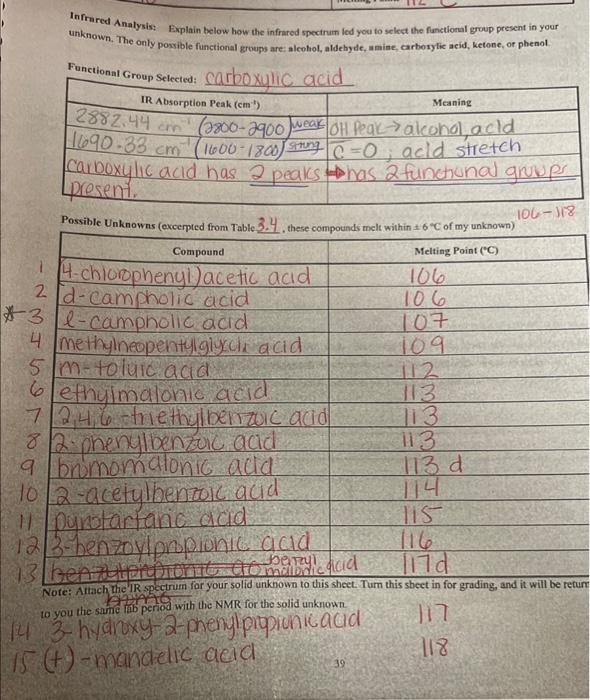 Infrared Analysis: Explain below how the infrared spectrum led you to select the functional group present in your
unknown. The only possible functional groups are: alcohol, aldehyde, amine, carboxylic acid, ketone, or phenol.
Functional Group Selected: carboxylic acid
IR Absorption Peak (cm⁻¹) Meaning
2882.44 cm⁻¹ (2800-2900) weak OH Peak → alcohol, acid
1690.33 cm⁻¹ (1600-1800) strong C=O, acid stretch
carboxylic acid has 2 peaks → has 2 functional groups
present.
106-118
Possible Unknowns (excerpted from Table 3.4, these compounds melt within ± 6 °C of my unknown)
Compound Melting Point (°C)
1 (4-chlorophenyl)acetic acid 106
2 d-campholic acid 106
* 3 l-campholic acid 107
4 methylneopentylglycolic acid 109
5 m-toluic acid 112
6 ethylmalonic acid 113
7 2,4,6-triethylbenzoic acid 113
8 2-phenylbenzoic acid 113
9 bromomalonic acid 113 d
10 2-acetylbenzoic acid 114
11 pyrotartaric acid 115
12 3-benzoylpropionic acid 116
13 benzyl malonic acid 117d
Note: Attach the IR spectrum for your solid unknown to this sheet. Turn this sheet in for grading, and it will be return
to you the same lab period with the NMR for the solid unknown.
14 3-hydroxy-2-phenylpropionic acid 117
15 (+)-mandelic acid 118
39